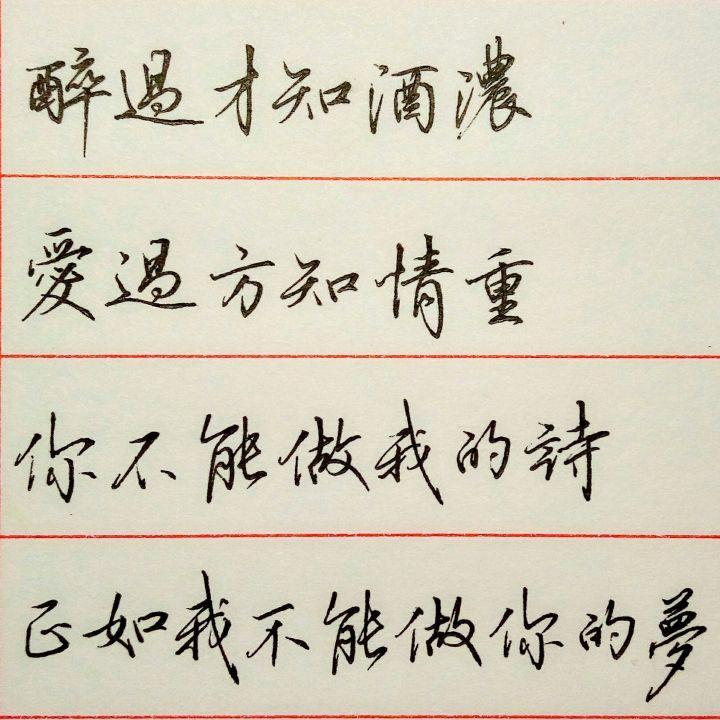 醉過才知酒濃
愛過方知情重
你不能做我的詩
正如我不能做你的夢